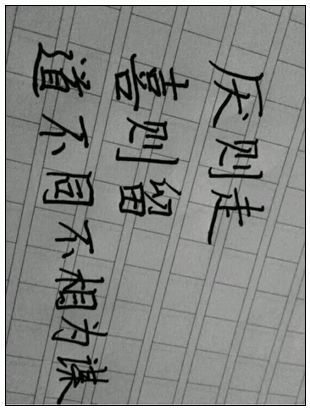 厌则走
喜则留
道不同不相为谋